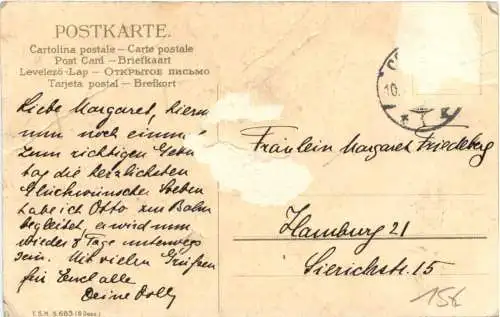 POSTKARTE.
Cartolina postale – Carte postale
Post Card – Briefkaart
Levelező-Lap – Открытое письмо
Tarjeta postal – Brefkort
Liebe Margaret, hierm
nun noch einma
zum richtigen Gebu
tag die herzlichsten
Glückwünsche. Soeben
habe ich Otto zur Bahn
begleitet, er wird nun
wieder 8 Tage unterwegs
sein. Mit vielen Grüssen
für Euch alle
Deine Dolly
Fräulein Margaret Friedeberg
Hamburg 21
Sierichstr. 15
10.
15€
T.S.N. S.663 (8 Dess.)